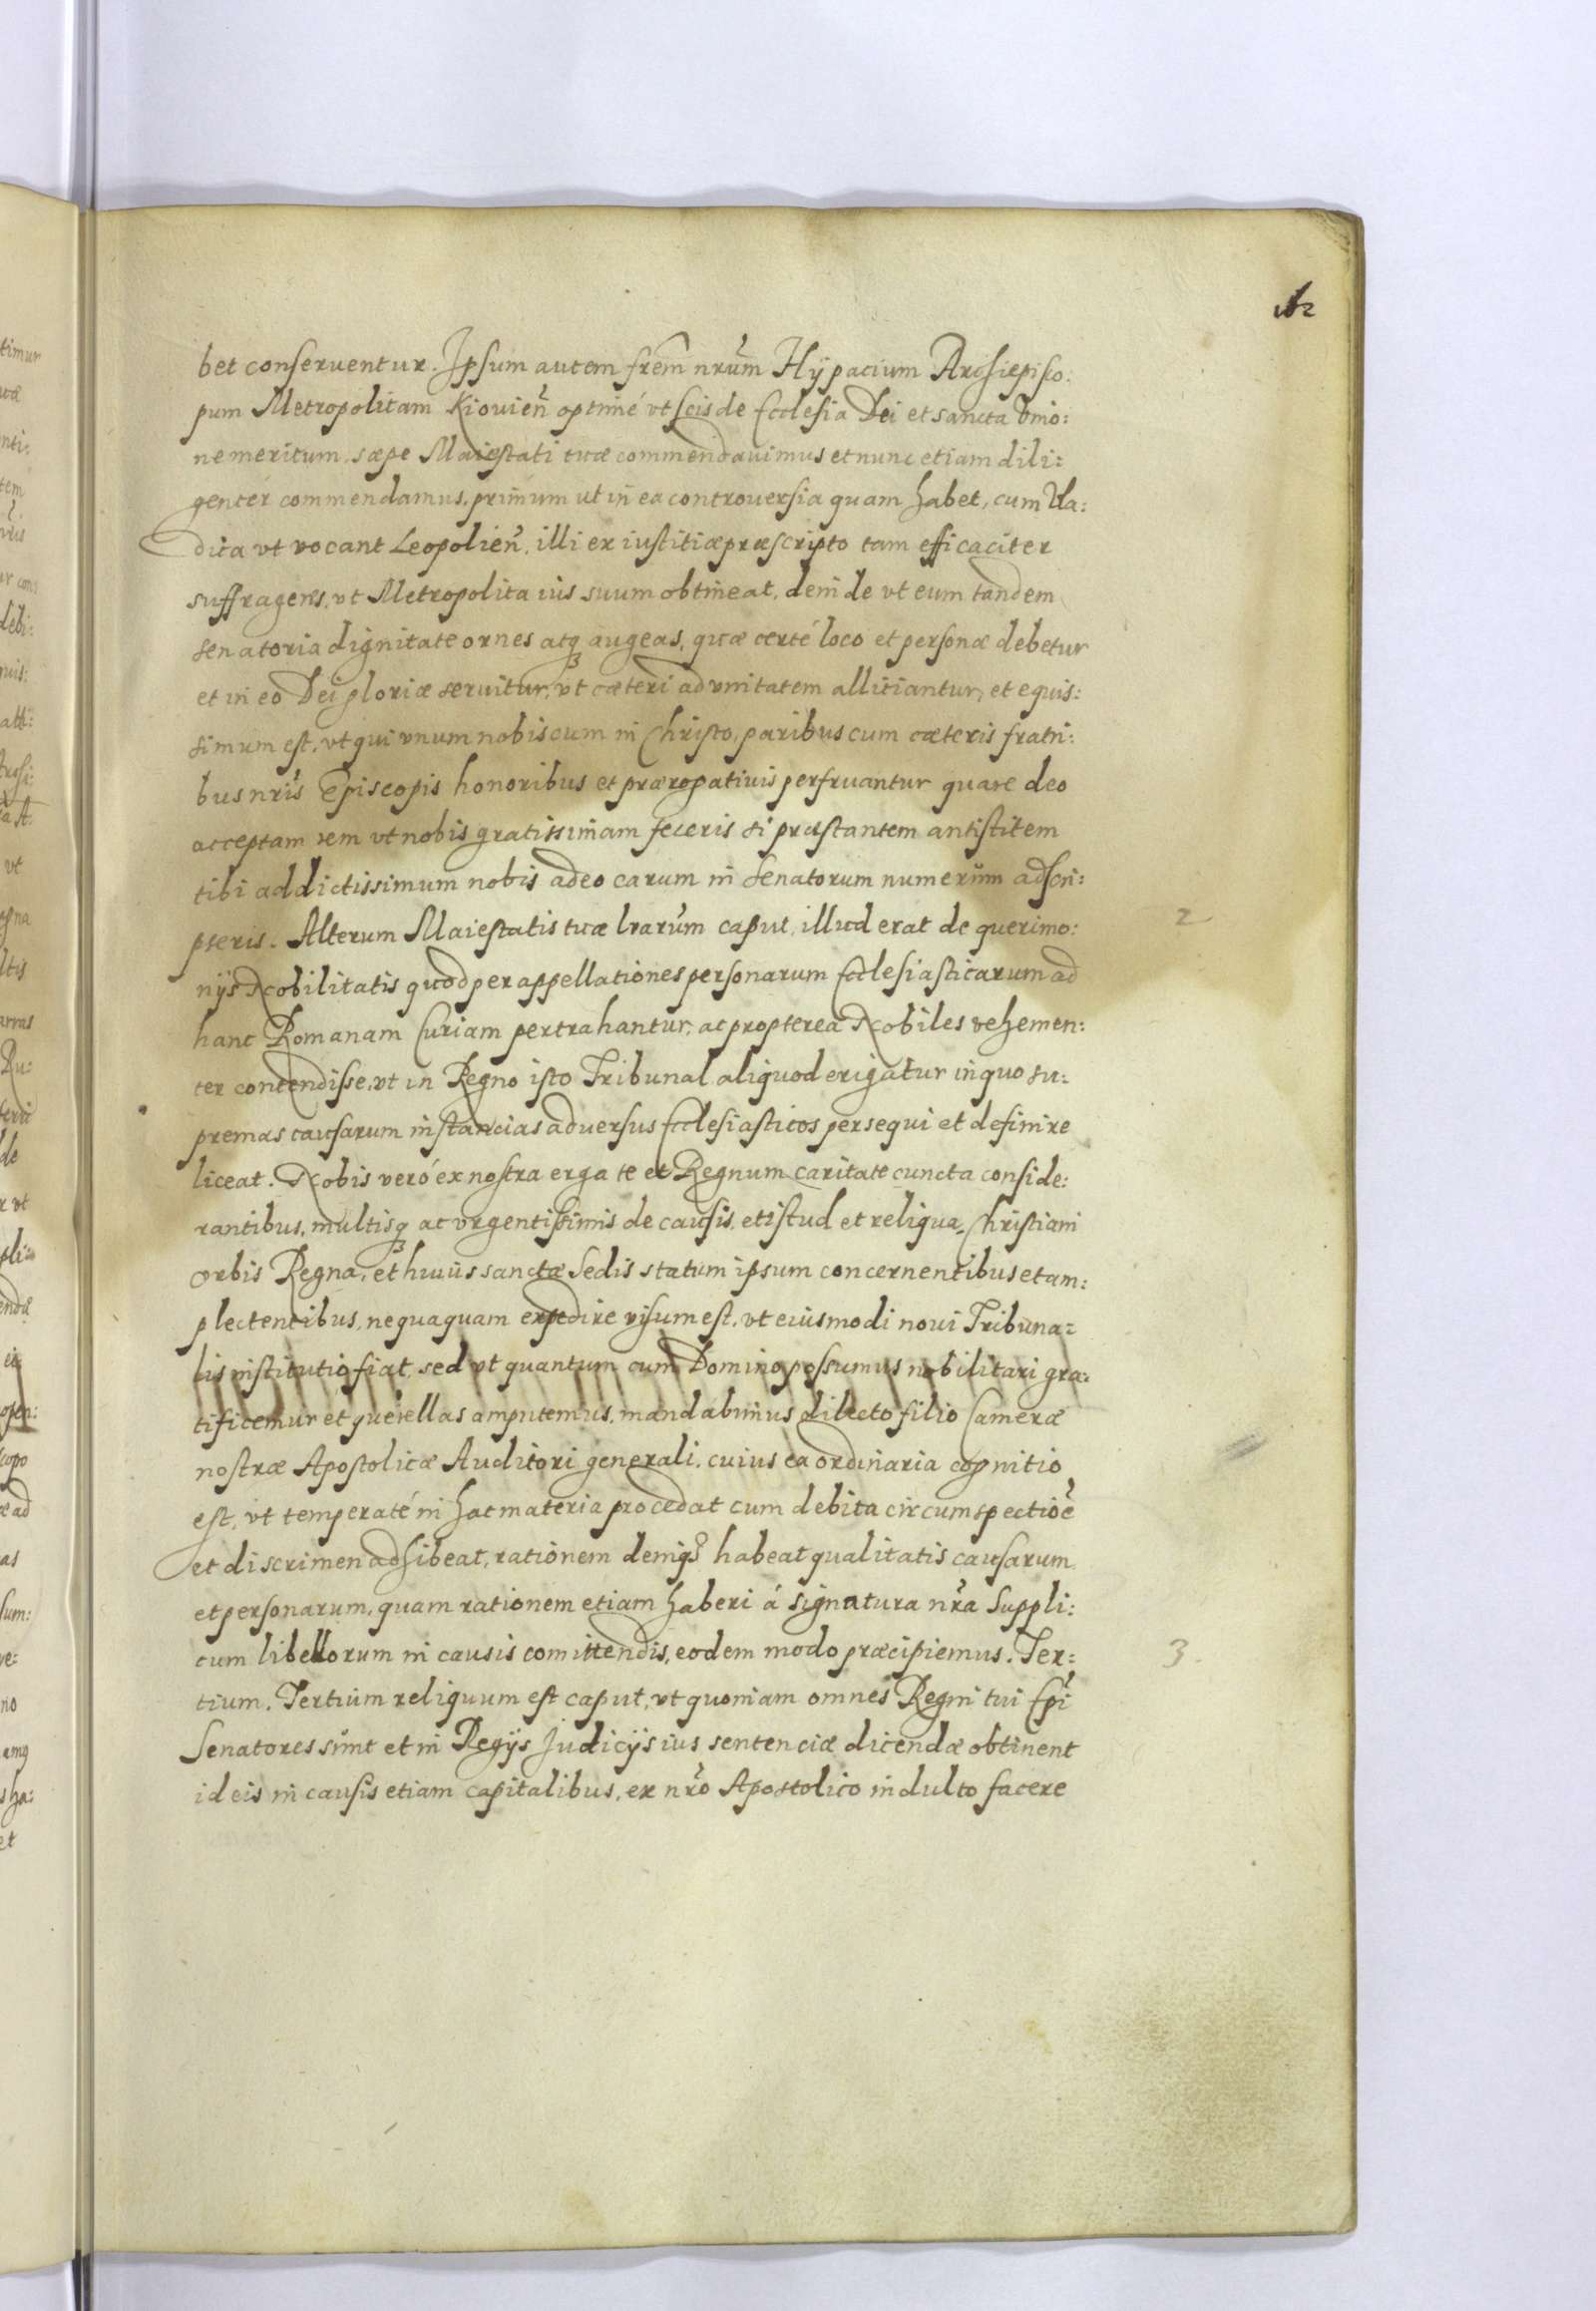 bet conseruentur. Ipsum autem frem̃ nrũm Hÿpacium Archiepisco:
pum Metropolitam Kiouieñ optimé vt scis de Ecclesia Dei et sancta Vnio:
ne meritum sæpe Maiestati tuæ commendauimus et nunc etiam dili:
genter commendamus. primum ut in ea controuersia quam habet, cum Vla:
dica vt vocant Leopolieñ. illi ex iustitiæ præscripto tam efficaciter
suffrageris, vt Metropolita ius suum obtineat, deinde vt eum tandem
senatoria dignitate ornes atq₃ augeas, quæ certé loco et personæ debetur
et in eo Dei gloriæ seruitur, vt cæteri ad vnitatem alliciantur, et equis:
simum est, vt qui vnum nobiscum in Christo, paribus cum cæteris fratri:
bus nrĩs Episcopis honoribus et prærogatiuis perfruantur quare deo
acceptam rem vt nobis gratissimam feceris si præstantem antistitem
tibi addictissimum nobis adeo carum in Senatorum numerum adscri:
pseris. Alterum Maiestatis tuæ lrarũm caput, illud erat de querimo:
nijs Nobilitatis quod per appellationes personarum Ecclesiasticarum ad
hanc Romanam Curiam pertrahantur, ac propterea Nobiles vehemen:
ter contendisse, vt in Regno isto Tribunal aliquod erigatur in quo su:
premas causarum instancias aduersus Ecclesiasticos persequi et definire
liceat. Nobis veró ex nostra erga te et Regnum caritate cuncta conside:
rantibus, multisq₃ ac vrgentissimis de causis, et istud et reliqua Christiani
orbis Regna, et huius sanctæ Sedis statum ipsum concernentibus et am:
plectentibus, nequaquam expedire visum est, vt eiusmodi noui Tribuna:
lis institutio fiat, sed vt quantum cum Domino possumus nobilitari gra:
tificemur et querellas amputemus, mandabimus dilecto filio Cameræ
nostræ Apostolicæ Auditori generali, cuius ea ordinaria cognitio
est, vt temperaté in hac materia procedat cum debita circumspectioẽ
et discrimen adhibeat, rationem deniq₃ habeat qualitatis causarum
et personarum, quam rationem etiam haberi á signatura nrã Suppli:
cum libellorum in causis comittendis, eodem modo præcipiemus. Ter:
tium. Tertium reliquum est caput, vt quoniam omnes Regni tui Epĩ
Senatores sunt et in Regijs Judicijs ius sentenciæ dicendæ obtinent
id eis in causis etiam capitalibus, ex nrõ Apostolico indulto facere
2
3.